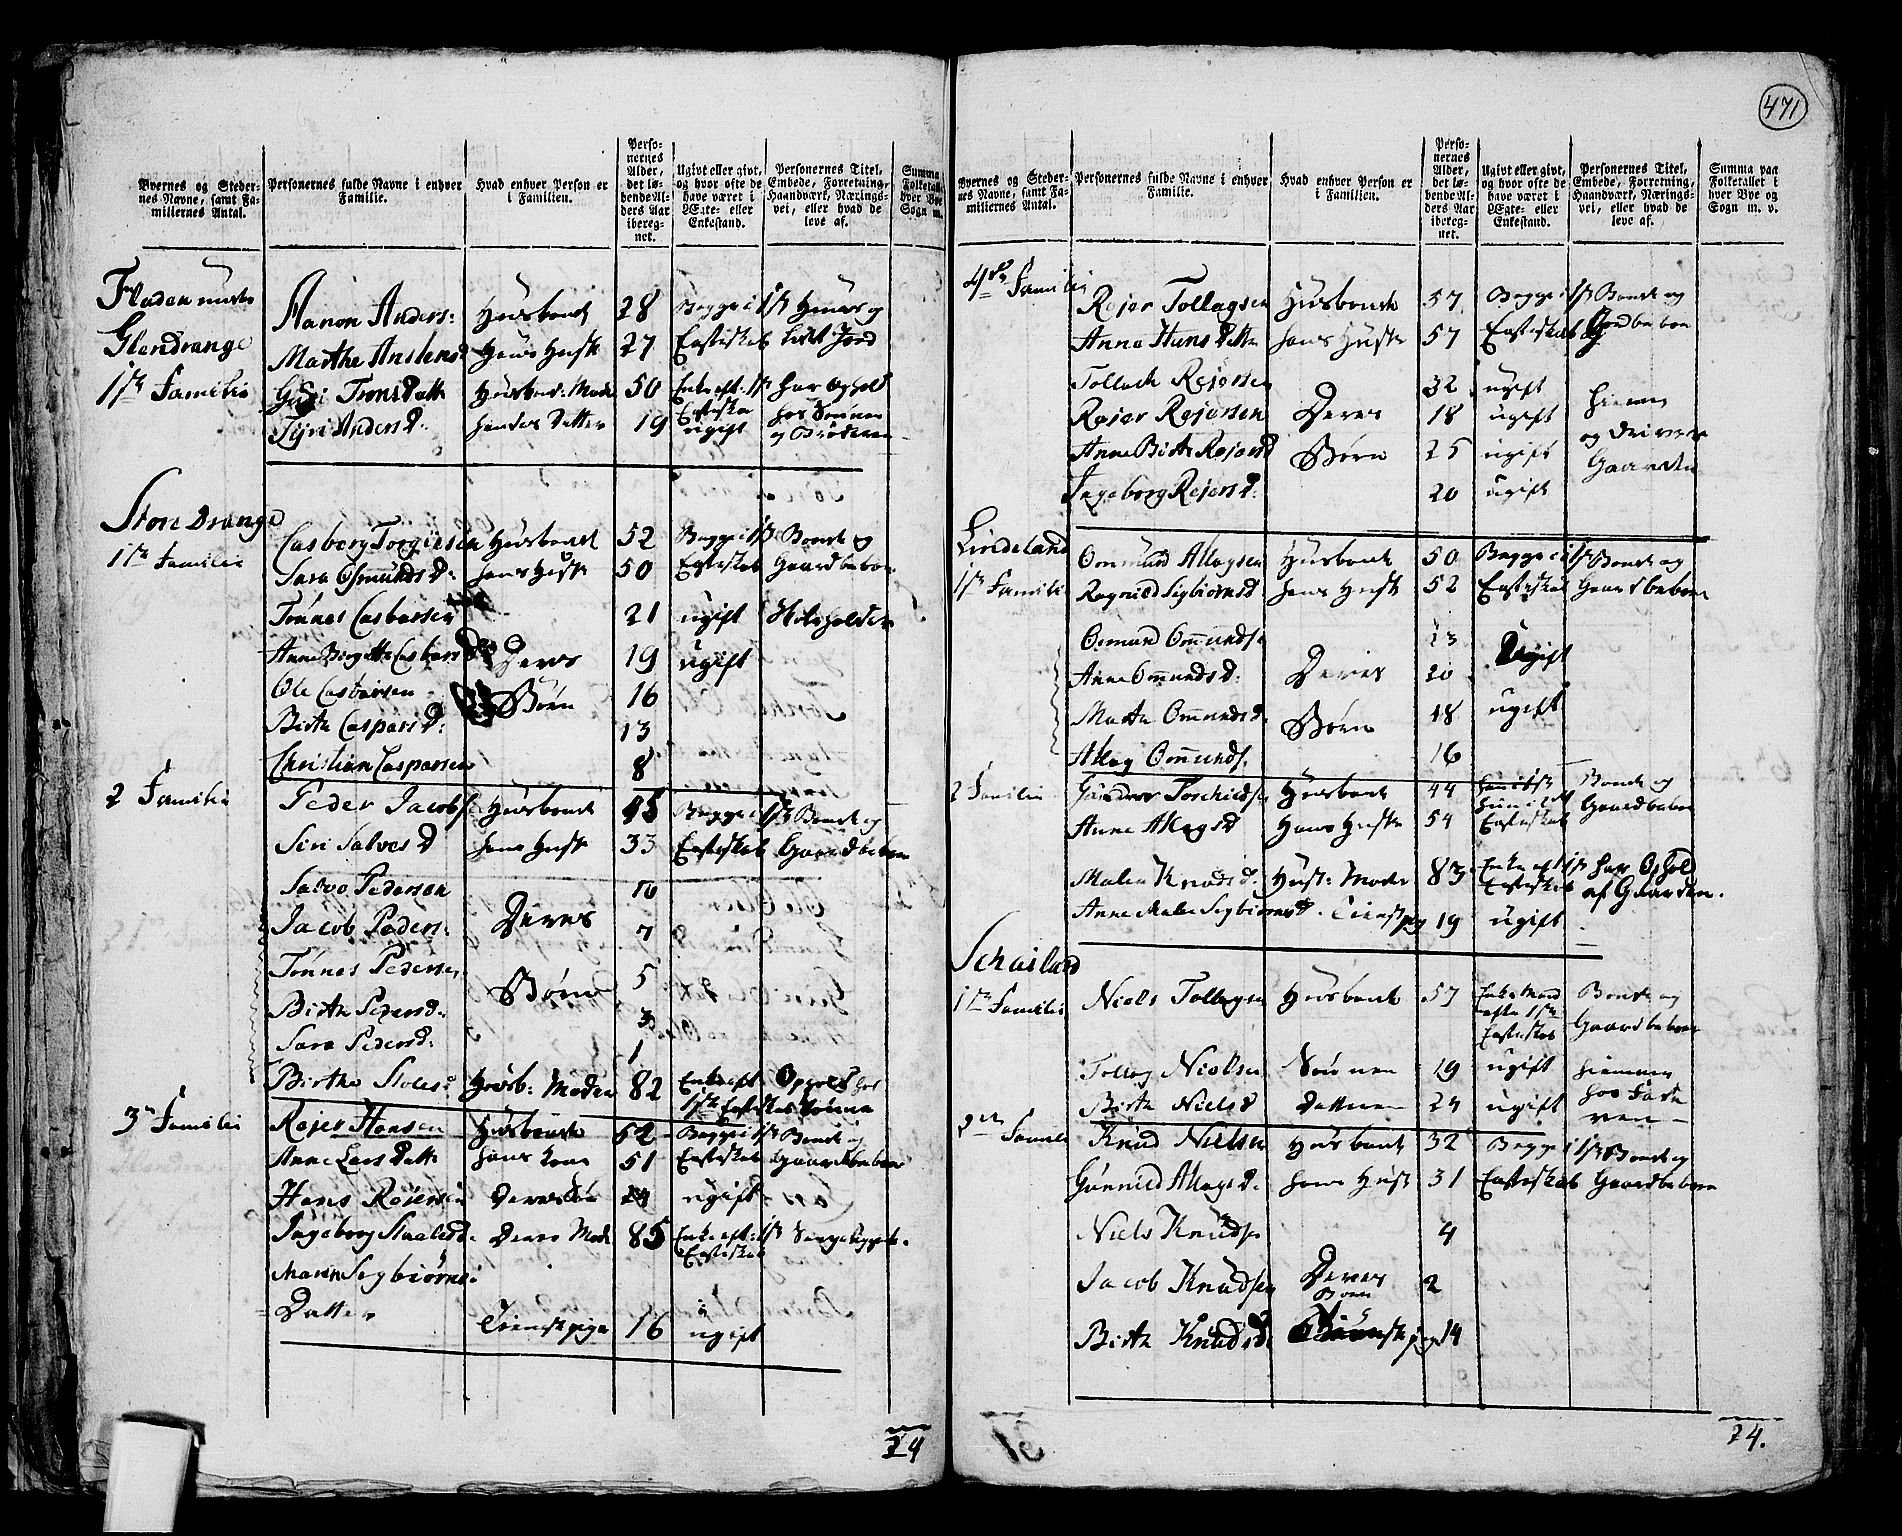 471
Byernes og Stedernes Navne, samt Familiernes Antal.
Personernes fulde Navne i enhver Familie.
Hvad enhver Person er i Familien.
Personernes Alder, det løbende Alders Aar iberegnet.
Ugivt eller givt, og hvor ofte de have været i Ægte- eller Enkestand.
Personernes Titel, Embede, Forretning, Haandværk, Næringsvei, eller hvad de leve af.
Summa Folketallet hver Bye Sogn m.
Glendrange
1ste Familie
Aanon Anders: Huusbonde 28 Begge i 1ste
Marthe Anstensd Hans Hustr 27 Egteskab lidet Jord
Guri Trons Datter Huusbond: Moder 50 Enke eft: 1ste har Ophold
Siri Anders D. hendes Datter 19 ugift
og Brøderen
Stor Drange
1ste Familie
Casberg Torgiersen Huusbonde 52 Begge i 1ste Bonde og
Sara Osmunds D: hans Hustr 50 Egteskab Gaardbeboer
Tønnes Casbersen 21 ugift
Anne Birgitte Casbers D Deres 19 ugift
Ole Casbersen Børn 16
Birthe Caspars D: 13
Christian Casparsen 8
2 Familie
Peder Jacobs: Huusbonde 45 Begge i 1ste Bonde og
Siri Salves D hans Hustr 33 Egteskab Gaardbeboer
Salve Pedersen 10
Jacob Peders: Deres 7
Tønnes Pedersen 5
Birthe Pedersd: Børn 3
Sara Pedersd: 1
Birthe Huusb: Moder 82 Enke eft Ophold hos
1ste Egteskab Sønnen
3die Familie
Rejer Hansen Huusbonde 52 Begge i 1ste Bonde og
Anne Lars Datter hans Kone 51 Egteskab Gaardbeboer
Hans Rejersen Deres Søn 24 ugift
Ingeborg Staalesd: Deres Mode 85 Enke eft: 1ste
Egteskab
Maren Segbiørns
Datter Tienistpige 16 ugift
24
Byernes og Stedernes Navne, samt Familiernes Antal.
Personernes fulde Navne i enhver Familie.
Hvad enhver Person er i Familien.
Personernes Alder, det løbende Alders Aar iberegnet.
Ugivt eller givt, og hvor ofte de have været i Ægte- eller Enkestand.
Personernes Titel, Embede, Forretning, Haandværk, Næringsvei, eller hvad de leve af.
Summa paa Folketallet i hver Bye og Sogn m. v.
4de Familie
Rejer Tollagsen Huusbonde 57 Begge i 1ste Bonde og
Anna Hans Datter hans Hustr 57 Egteskab Gaardbeboer
Tollach Rejersen 32 ugift
Rejer Rejersen Deres 18 ugift hiemme
Anne Birthe Rejersd Børn 25 ugift og driver
Ingeborg Rejersd: 20 ugift Gaarden
Lindeland
1ste Familie
Ommund Allagsen Huusbonde 50 Begge i 1ste Bonde og
Ragnild Segbiørnsd hans Hustr 52 Egteskab Gaardbeboer
Osmund Ommundse 23 Ugift
Anne Ommundsd: Deres 20
Marta Ommundsd: Børn 18 ugift
Allag Ommunds. 16
2 Familie
Gunder Torchildsen Huusbonde 44 Bonde og
Anne Allagsd Hans Hustr 54 Egteskab Gaardbeboer
Malen Knudsd: Hust: Moder 83 Enke eft 1ste har Ophold
Egteskab af Gaarden.
Anne Malee Segbiørnsd. Tienistpig 19 ugift
1ste Familie
Niels Tollagsen Huusbonde 57 Enke Mand Bonde og
efter 1ste Gaardbeboer
Egteskab
Tollag Nielsen Sønnen 19 ugift hiemme
Birthe Nielsd Datteren 24 ugift hos Faderen
2den Famili
Knud Nielsen Huusbonde 32 Begge i 1ste Bonde og
Gunnild Allagsd. hans Hustr 31 Egteskab Gaardbeboer
Niels Knudse 4
Jacob Knudsen Deres Børn 2
Birthe Knudsd. Tienistpig 14
24.